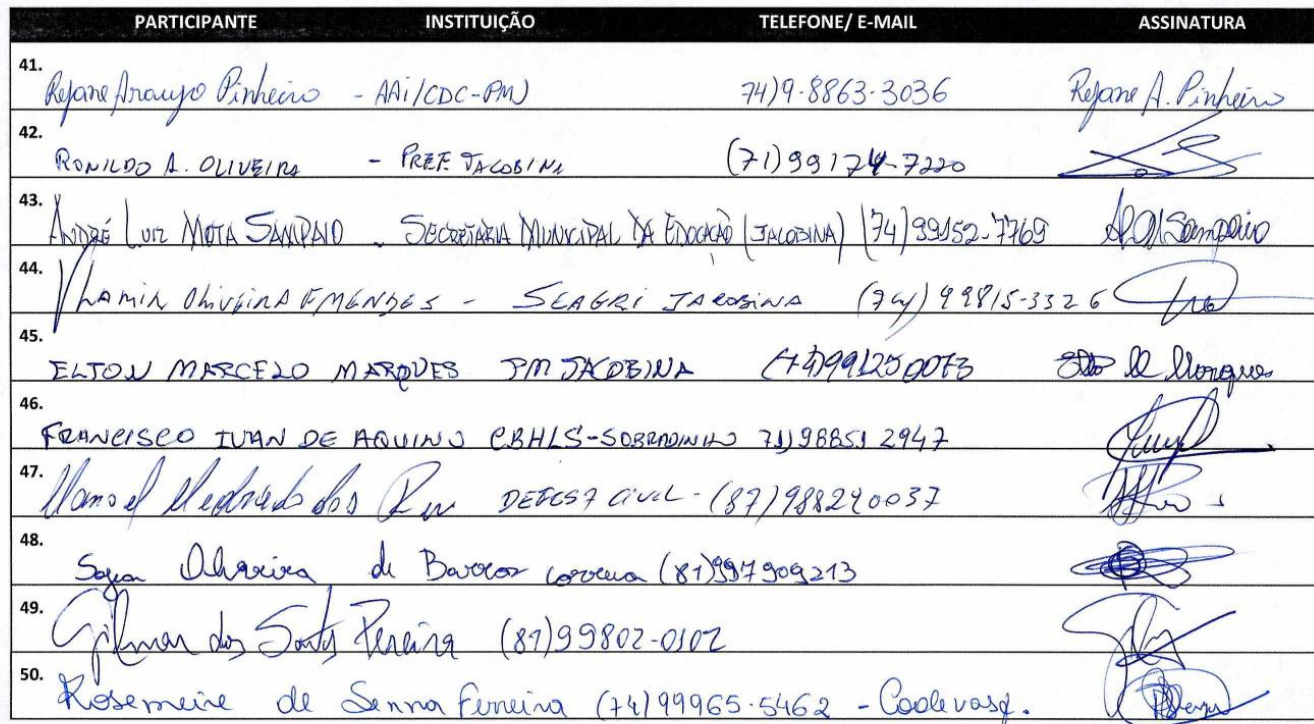 PARTICIPANTE INSTITUIÇÃO TELEFONE/ E-MAIL ASSINATURA
41. Rejane Araujo Pinheiro - AAI/CDC-PMJ 74)9.8863-3036 Rejane A. Pinheiro
42. RONILDO A. OLIVEIRA - PREF. JACOBINA (71)99174-7220
43. ANDRÉ LUIZ MOTA SAMPAIO - SECRETARIA MUNICIPAL DA EDUCAÇÃO (JACOBINA) (74)99152-7769 Sampaio
44. OLIVEIRA - SEAGRI JACOBINA (74) 99815-3326
45. ELTON MARCELO MARQUES PM JACOBINA (74)991250073 Marques
46. FRANCISCO IVAN DE AQUINO CBHLS-SOBRADINHO 71)98851 2947
47. Manoel dos DEFESA CIVIL - (87)988290037
48. Oliveira de Barros (81)997909213
49. Gilmar dos Santos Pereira (87)99802-0102
50. Rosemeire de Senna Ferreira (74)99965-5462 - Coolevasf.